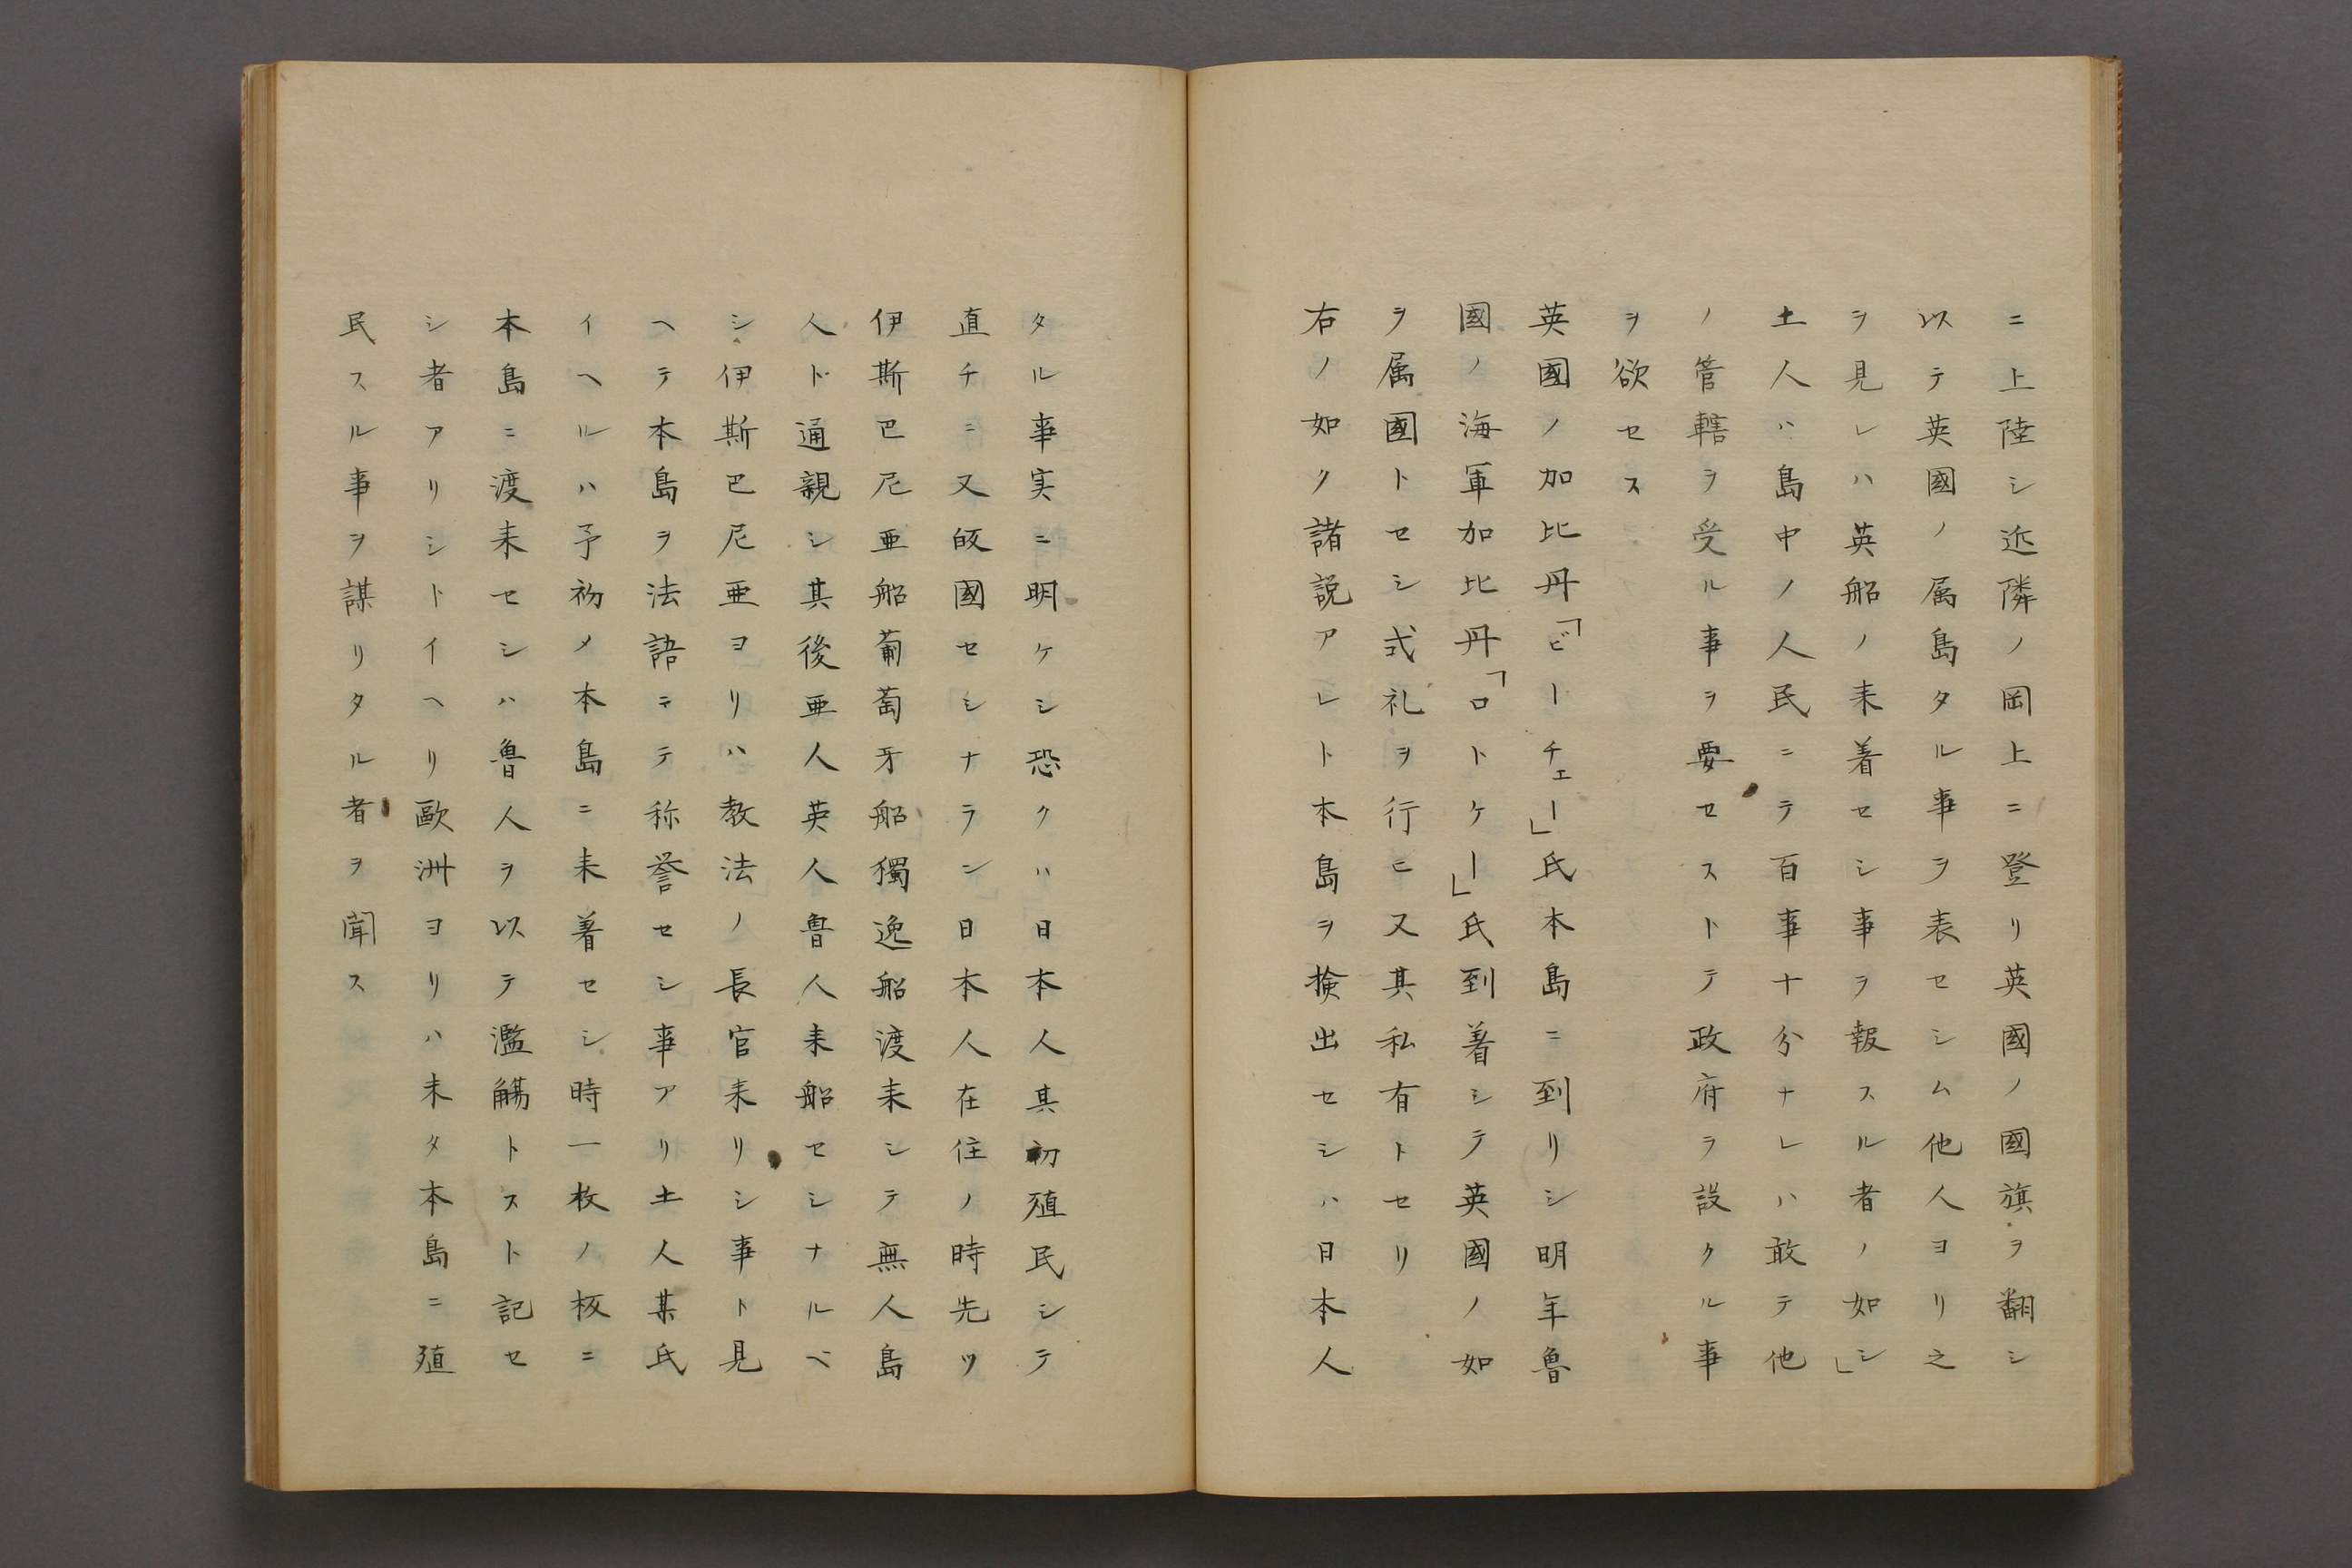 ニ上陸シ近隣ノ岡上ニ登リ英國ノ國旗ヲ翻シ
以テ英國ノ属島タル事ヲ表セシム他人ヨリ之
ヲ見レハ英船ノ来着セシ事ヲ報スル者ノ如シ」
土人ハ島中ノ人民ニテ百事十分ナレハ敢テ他
ノ管轄ヲ受ル事ヲ要セストテ政府ヲ設クル事
ヲ欲セス
英國ノ加比丹「ビーチェー」氏本島ニ到リシ明年魯
國ノ海軍加比丹「ロトケー」氏到着シテ英國ノ如
ヲ属國トセシ式礼ヲ行ニ又其私有トセリ
右ノ如ク諸説アレト本島ヲ検出セシハ日本人
タル事実ニ明ケシ恐クハ日本人其初殖民シテ
直チニ又皈國セシナラン日本人在住ノ時先ツ
伊斯巴尼亜船葡萄牙船獨逸船渡来シテ無人島
人ト通親シ其後亜人英人魯人来船セシナルベ
シ伊斯巴尼亜ヨリハ教法ノ長官来リシ事ト見
ヘテ本島ヲ法語ニテ称誉セシ事アリ土人某氏
イヘルハ予初メ本島ニ来着セシ時一枚ノ板ニ
本島ニ渡来セシハ魯人ヲ以テ濫觴トスト記セ
シ者アリシトイヘリ歐洲ヨリハ未タ本島ニ殖
民スル事ヲ謀リタル者ヲ聞ス